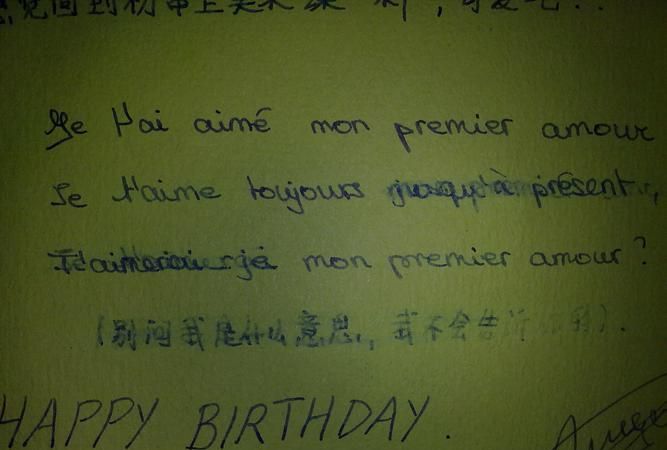 觉回到初中上美术课
Je t'ai aimé mon premier amour
Je t'aime toujours jusqu'à présent,
T'aimerai-je mon premier amour ?
(别问我是什么意思, 我不会告诉你的).
HAPPY BIRTHDAY.